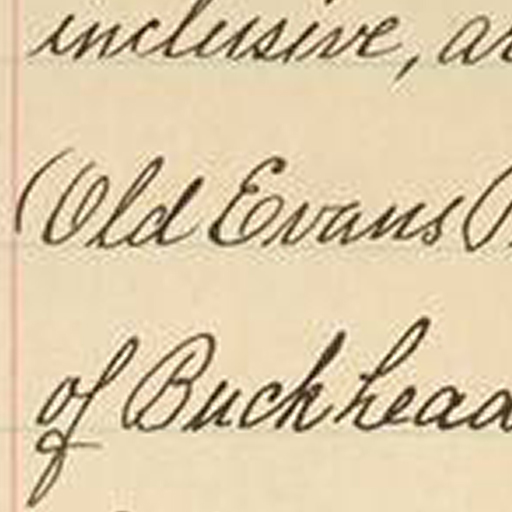 inclusive, a
(Old Evans
of Buckhead